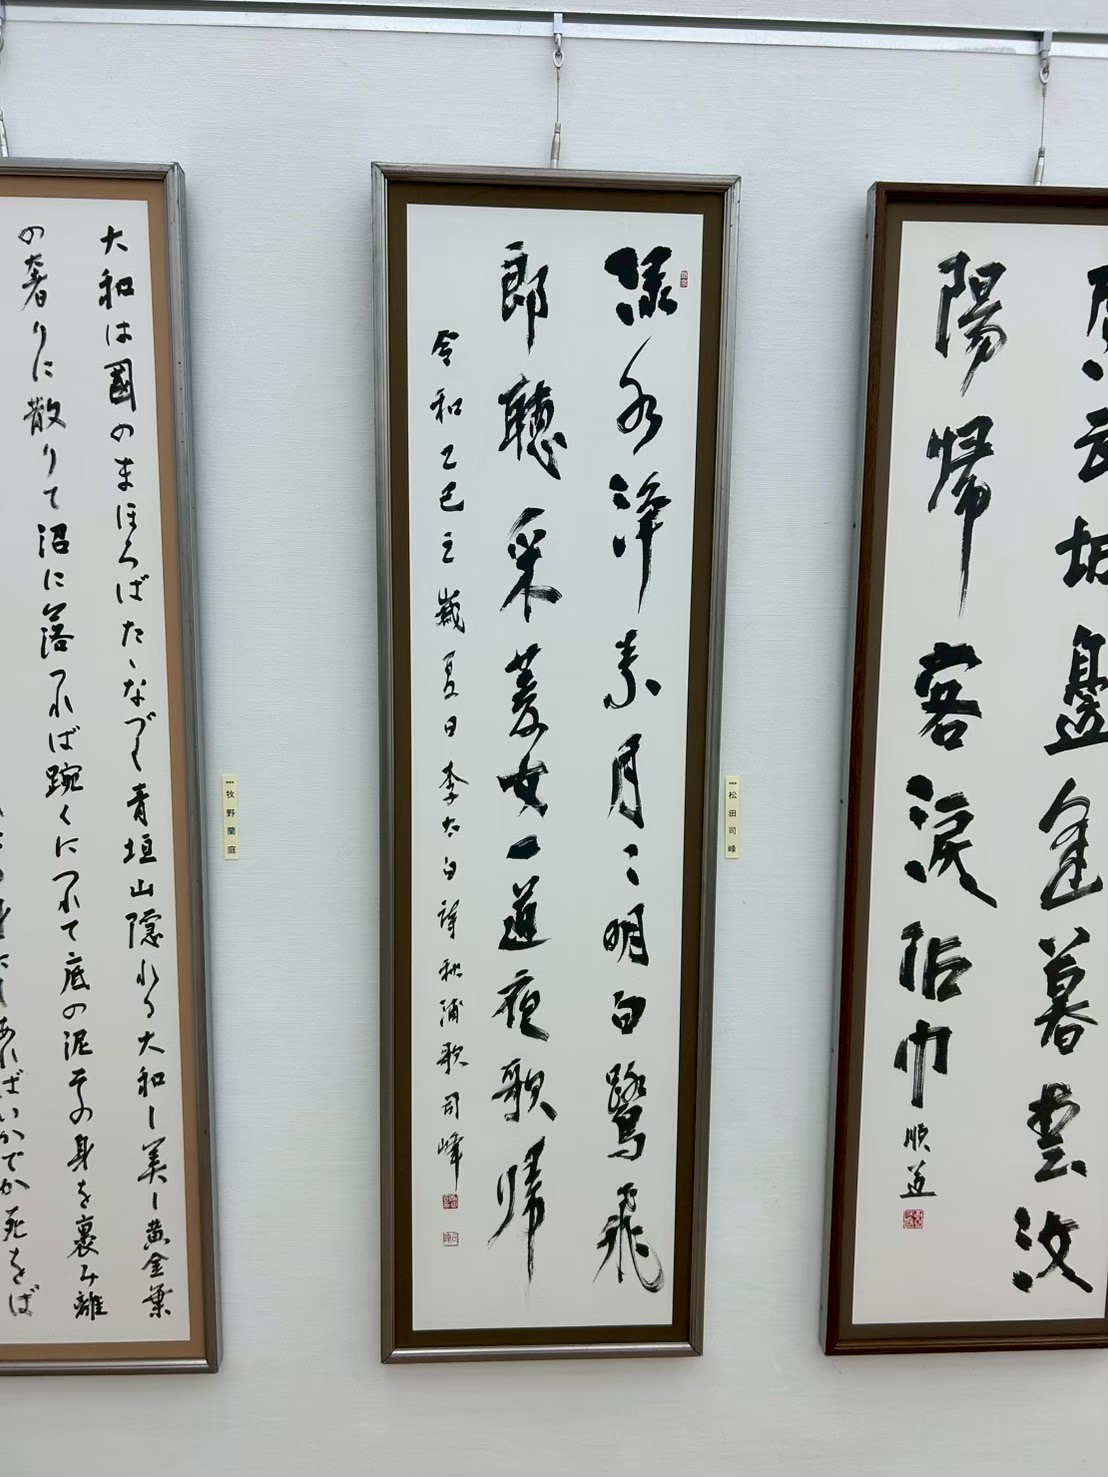 武城邊逢暮春汶
陽帰客涙沾巾 順
松田司峰
淥水淨素月〻明白鷺飛
郎聽采菱女一道夜歌帰
令和乙巳之歳夏日李太白詩秋浦歌 司峰
牧野蘭庭
大和は國のまほろばたゝなづく青垣山隠れる大和し美し黄金葉
の奢りに散りて沼に落つれば踠くにつれて底の泥その身を裹み離
あればいかでか死をば